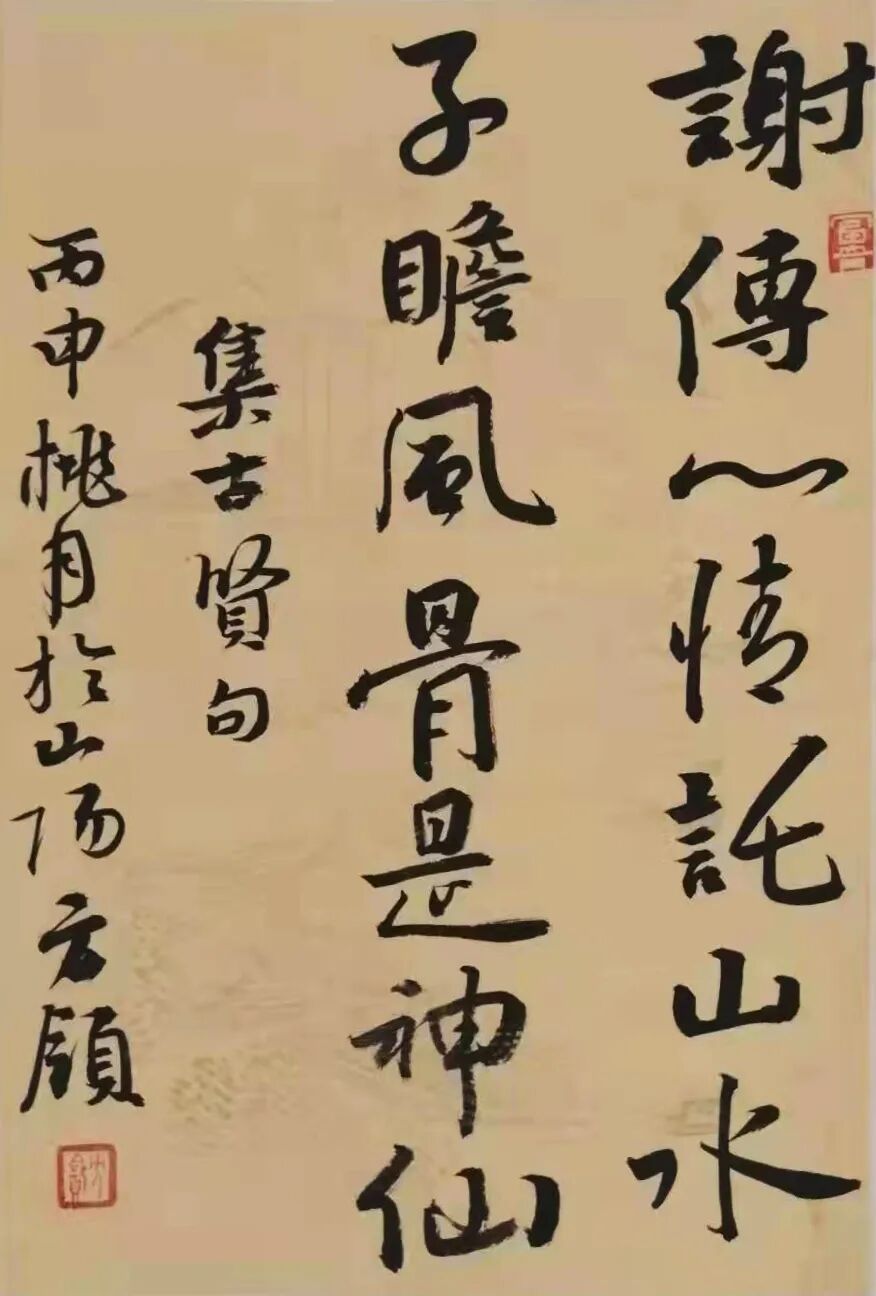 謝傅心情託山水
子瞻風骨是神仙
集古賢句
丙申桃月於山陽方頠